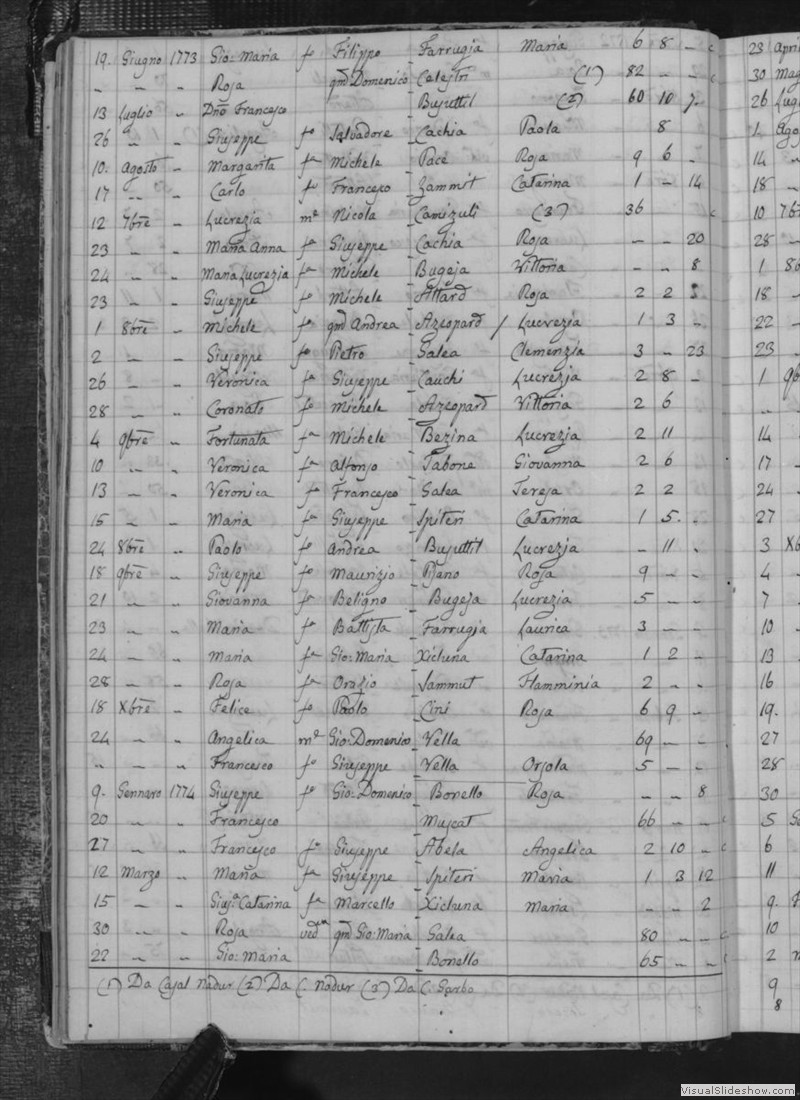 19. Giugno 1773 Gio: Maria fo Filippo Farrugia Maria 6 8 – c
– – – Rosa qm Domenico Calestri (1) 82 – – c
13 Luglio – Dno Francesco Busuttil (2) 60 10 7
26 – – Giuseppe fo Salvadore Cachia Paola 8
10. Agosto – Margarita fa Michele Pace Rosa 9 6 –
17 – – Carlo fo Francesco Zammit Catarina 1 – 14
12 7bre – Lucrezia me Nicola Camizuli (3) 36 c
23 – – Maria Anna fa Giuseppe Cachia Rosa – – 20
24 – – Maria Lucrezia fa Michele Bugeja Vittoria – – 8
23 – – Giuseppe fo Michele Attard Rosa 2 2
1 8bre – Michele fo qm Andrea Azeopard / Lucrezia 1 3 –
2 – – Giuseppe fo Pietro Galea Clemenzia 3 – 23
26 – – Veronica fa Giuseppe Cauchi Lucrezia 2 8 –
28 – – Coronato fo Michele Azeopard Vittoria 2 6
4 9bre – Fortunata fa Michele Bezina Lucrezia 2 11
10 – – Veronica fa Alfonso Tabone Giovanna 2 6
13 – – Veronica fa Francesco Galea Teresa 2 2
15 – – Maria fa Giuseppe Spiteri Catarina 1 5. –
24 8bre – Paolo fo Andrea Busuttil Lucrezia – 11 –
18 9bre – Giuseppe fo Maurizio Pisano Rosa 9 – –
21 – – Giovanna fa Beligno Bugeja Lucrezia 5 – –
23 – – Maria fa Battista Farrugia Laurica 3 – –
24 – – Maria fa Gio: Maria Xicluna Catarina 1 2 –
28 – – Rosa fa Orazio Sammut Flamminia 2 – –
18 Xbre – Felice fo Paolo Cini Rosa 6 9 –
24 – – Angelica me Gio: Domenico Vella 69 – –
– – – Francesco fo Giuseppe Vella Orsola 5 – –
9. Gennaro 1774 Giuseppe fo Gio: Domenico Bonello Rosa – – 8
20 – – Francesco Muscat 66 – – c
27 – – Francesco fo Giuseppe Abela Angelica 2 10 – c
12 Marzo – Maria fa Giuseppe Spiteri Maria 1 3 12
15 – – Catarina fa Marcello Xicluna Maria – – 2
30 – – Rosa qm Gio: Maria Galea 80 – – c
22 – – Gio: Maria Bonello 65 – – c
(1) Da Casal Nadur (2) Da C. Nadur (3) Da C. Garbo
23 Apri
30 Mag
26 Lugl
1. Ago
14 –
18 –
10 7b
28 –
1 8b
18 –
22 –
23 –
1 9b
–
14
17 –
24
27
3 Xb
4 –
7
10
13
16
19.
27
28
30
5
6
11
9.
10
2
9
8
VisualSlideshow.com